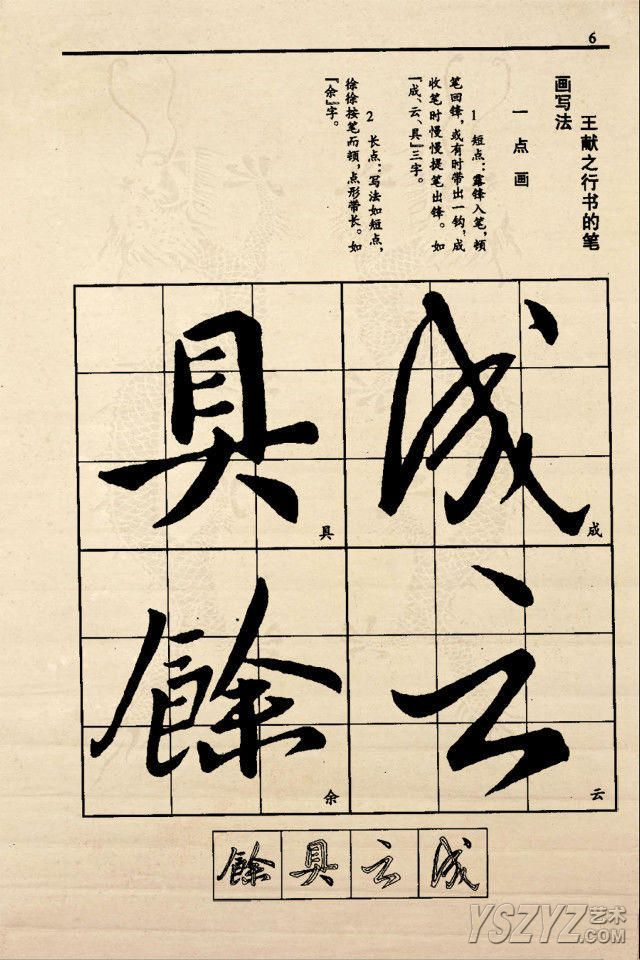 6
王献之行书的笔
画写法
一点画
1 短点:露锋入笔,顿
笔回锋,或有时带出一钩,成
收笔时慢慢提笔出锋。如
『成、云、具』三字。
2 长点:写法如短点,
徐徐按笔而顿,点形带长。如
『余』字。
成
成
云
云
具
具
餘
余
餘 具 云 成
YSZYZ艺术
.COM